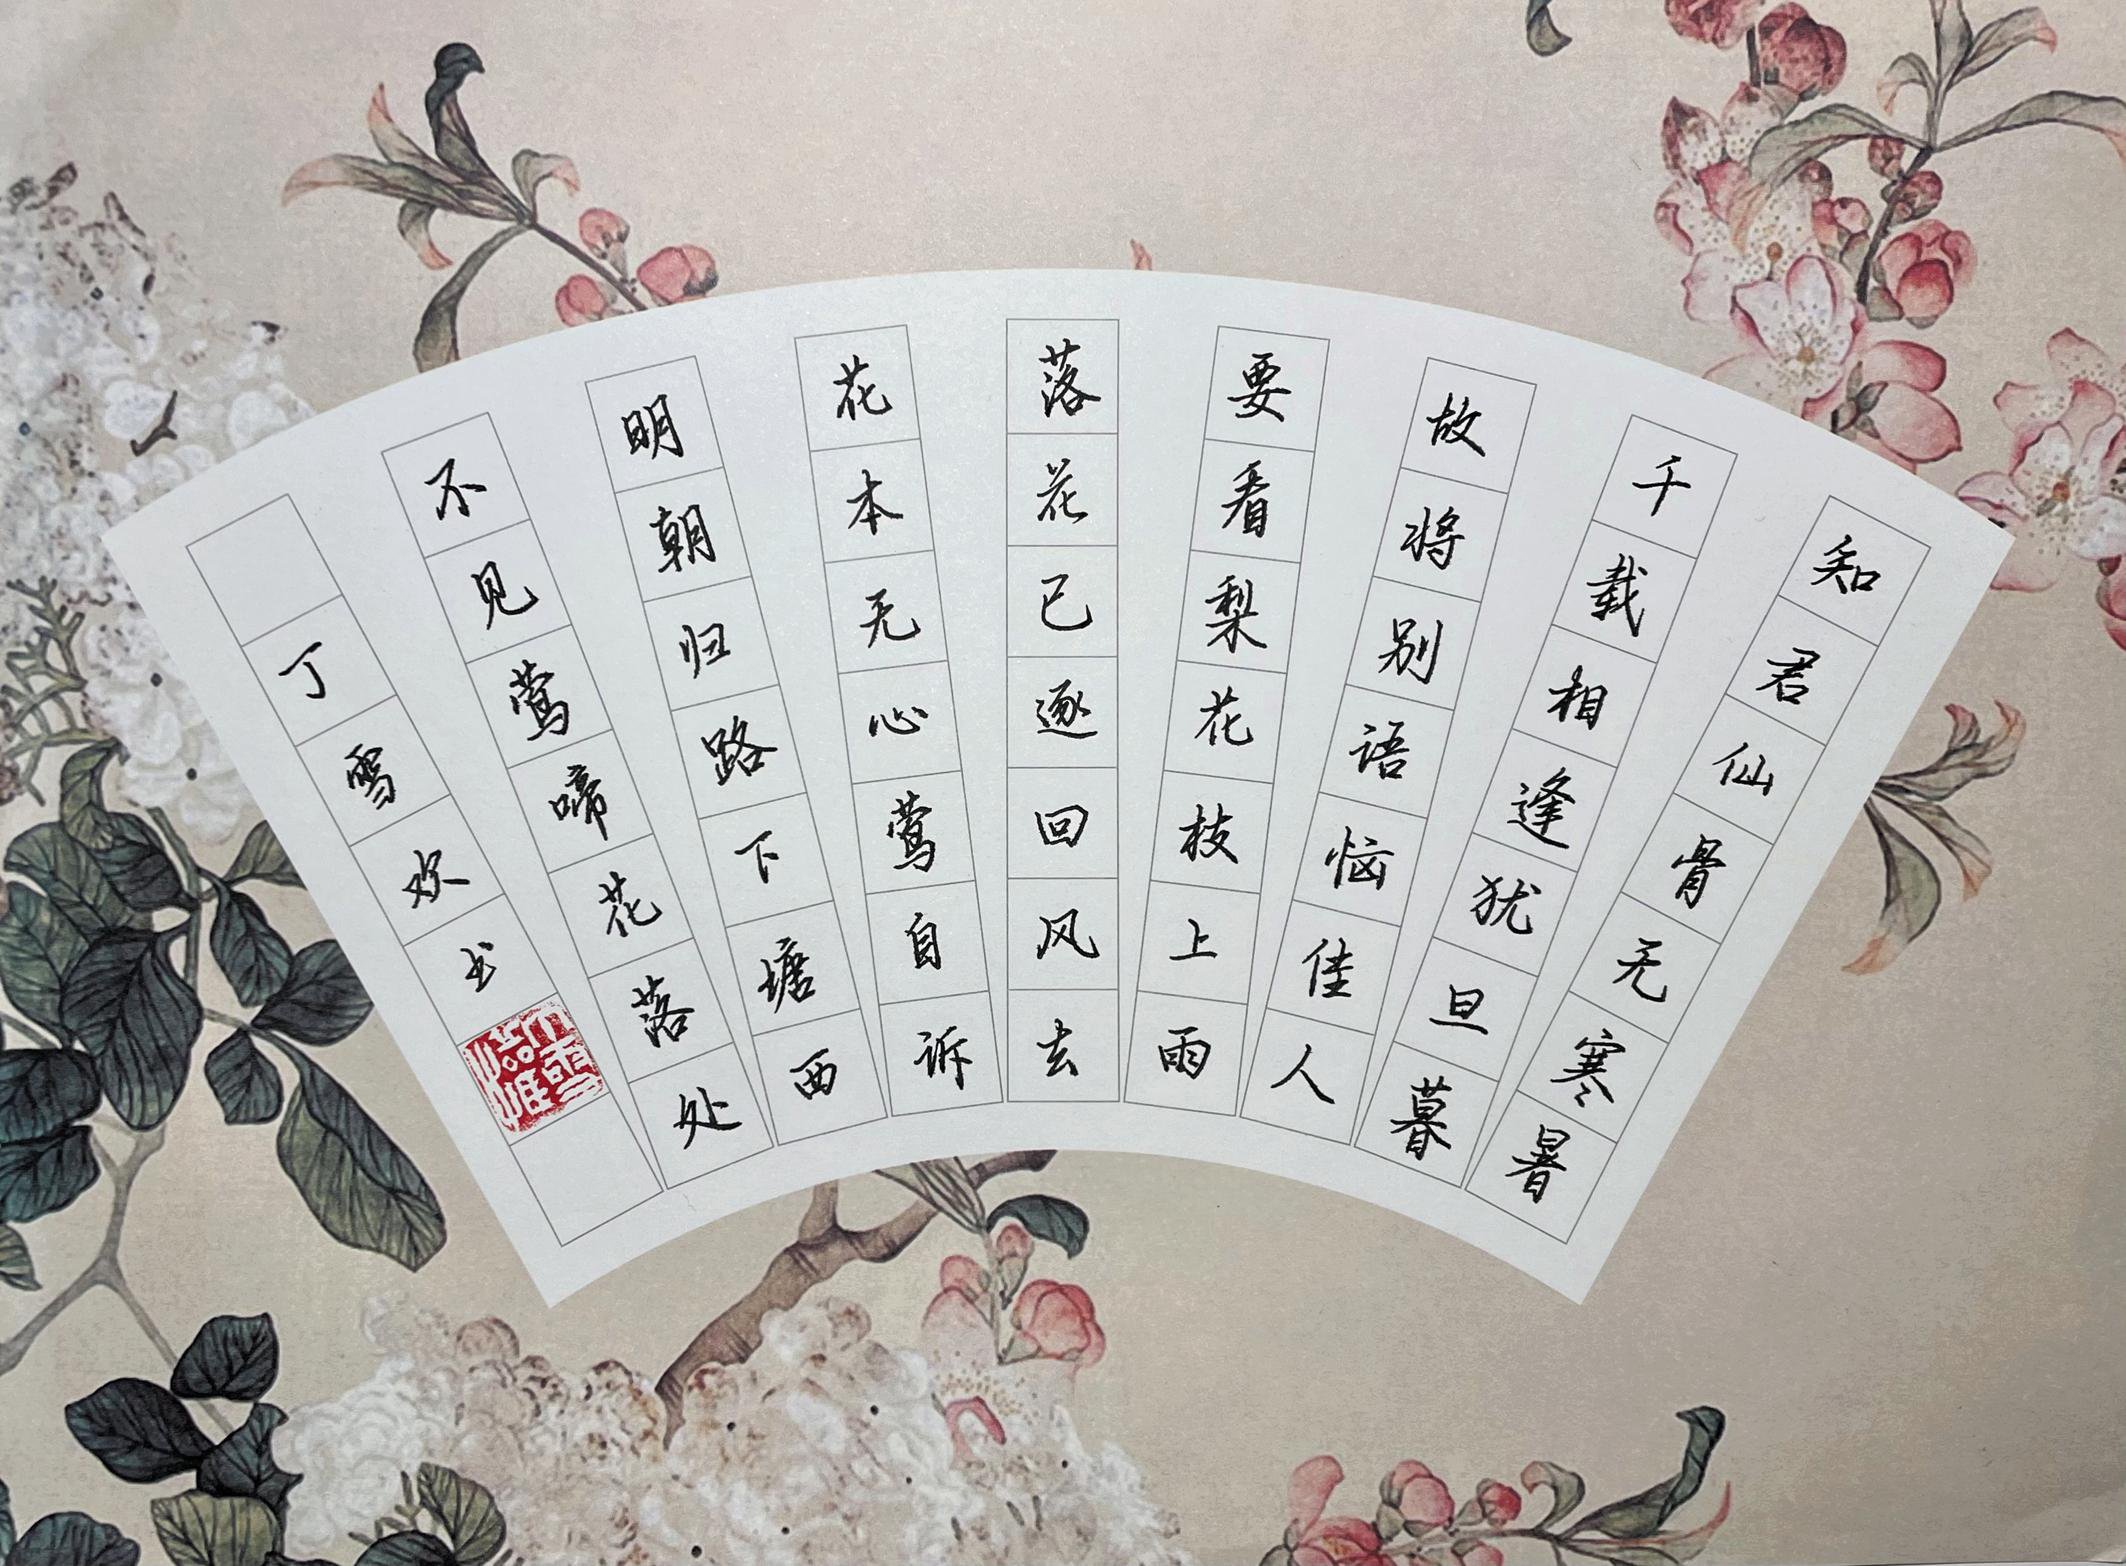 知君仙骨无寒暑
千载相逢犹旦暮
故将别语恼佳人
要看梨花枝上雨
落花已逐回风去
花本无心莺自诉
明朝归路下塘西
不见莺啼花落处
丁雪欢书